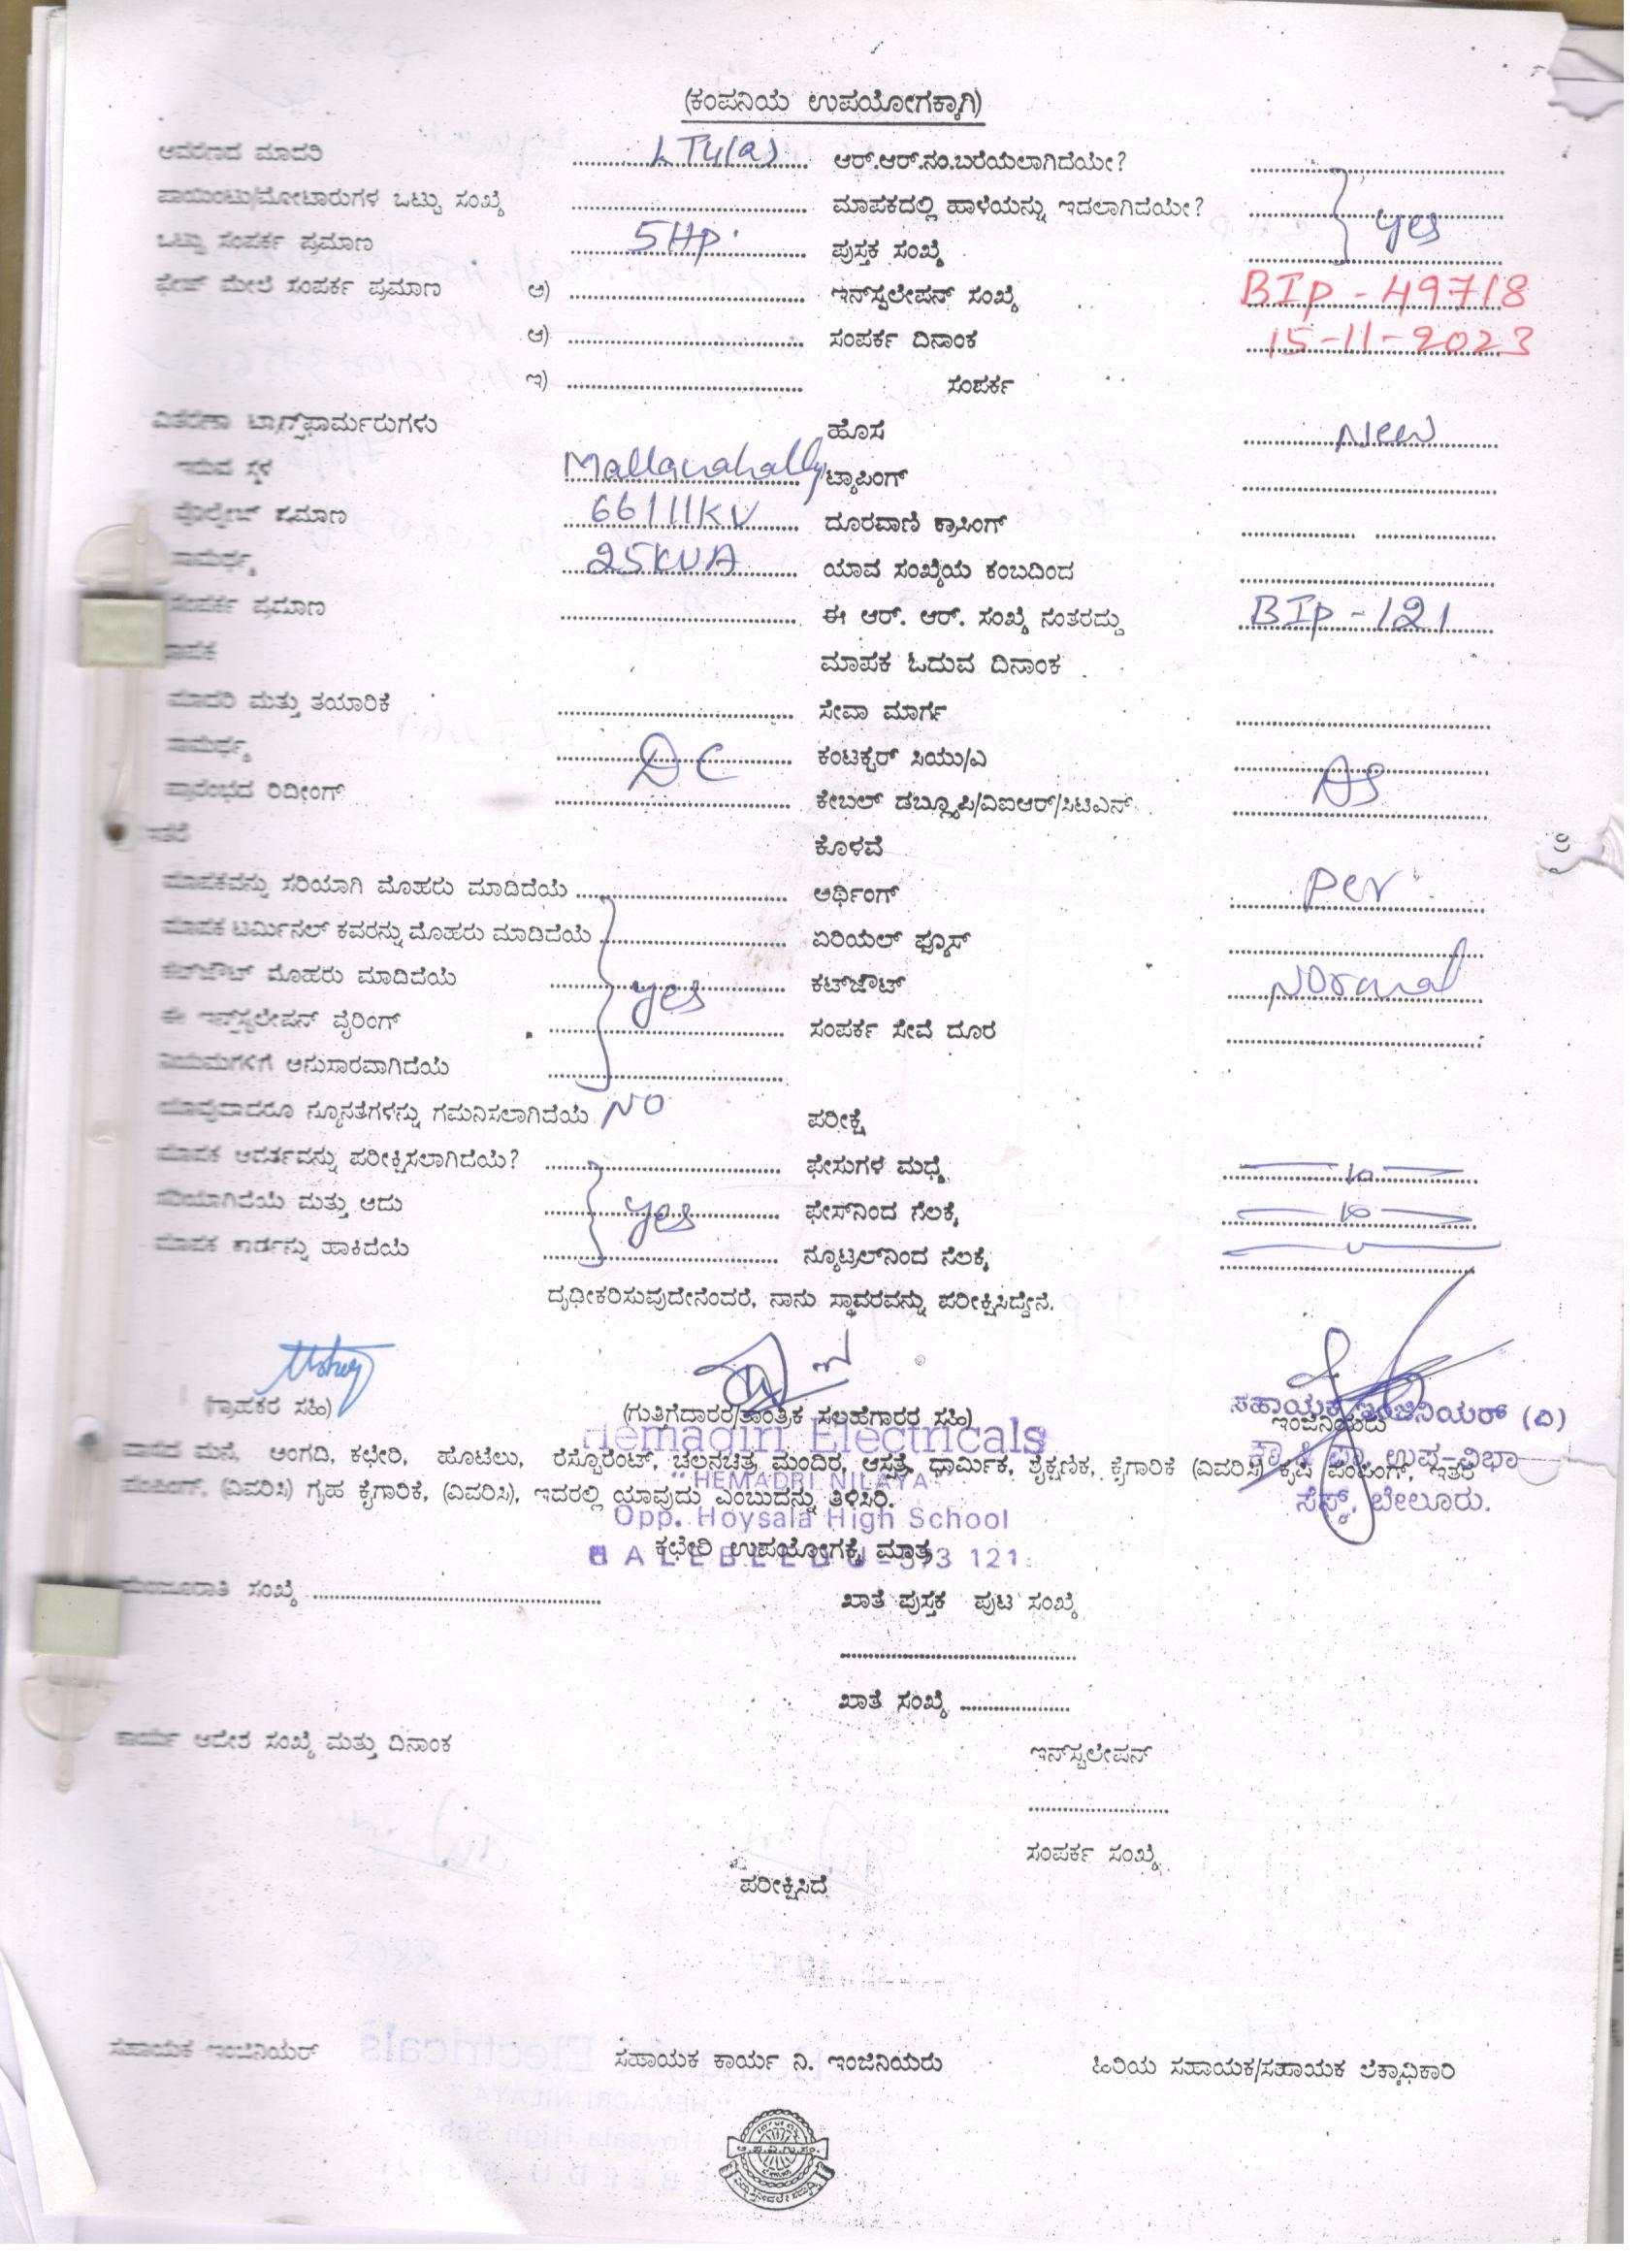 (ಕಂಪನಿಯ ಉಪಯೋಗಕ್ಕಾಗಿ)
ಆವರಣದ ಮಾದರಿ LT4(a) ಆರ್.ಆರ್.ನಂ.ಬರೆಯಲಾಗಿದೆಯೇ?
ಪಾಯಿಂಟು/ಮೋಟಾರುಗಳ ಒಟ್ಟು ಸಂಖ್ಯೆ ಮಾಪಕದಲ್ಲಿ ಹಾಳೆಯನ್ನು ಇಡಲಾಗಿದೆಯೇ? yes
ಒಟ್ಟು ಸಂಪರ್ಕ ಪ್ರಮಾಣ 5HP ಪುಸ್ತಕ ಸಂಖ್ಯೆ
ಫೇಜ್ ಮೇಲೆ ಸಂಪರ್ಕ ಪ್ರಮಾಣ ಅ) ಇನ್‌ಸ್ಟಲೇಷನ್ ಸಂಖ್ಯೆ BIP-49718
ಆ) ಸಂಪರ್ಕ ದಿನಾಂಕ 15-11-2023
ಇ) ಸಂಪರ್ಕ
ವಿತರಣಾ ಟ್ರಾನ್ಸ್‌ಫಾರ್ಮರುಗಳು ಹೊಸ New
ಇರುವ ಸ್ಥಳ Mallanahally ಟ್ಯಾಪಿಂಗ್
ವೊಲ್ಟೇಜ್ ಪ್ರಮಾಣ 66/11KV ದೂರವಾಣಿ ಕ್ರಾಸಿಂಗ್
ಸಾಮರ್ಥ್ಯ 25KVA ಯಾವ ಸಂಖ್ಯೆಯ ಕಂಬದಿಂದ
ಸಂಪರ್ಕ ಪ್ರಮಾಣ ಈ ಆರ್. ಆರ್. ಸಂಖ್ಯೆ ನಂತರದ್ದು BIP-121
ಮಾಪಕ ಮಾಪಕ ಓದುವ ದಿನಾಂಕ
ಮಾದರಿ ಮತ್ತು ತಯಾರಿಕೆ ಸೇವಾ ಮಾರ್ಗ
ಸಾಮರ್ಥ್ಯ DC ಕಂಟಕ್ಟರ್ ಸಿಯು/ಎ
ಪ್ರಾರಂಭದ ರಿಡೀಂಗ್ ಕೇಬಲ್ ಡಬ್ಲ್ಯೂಪಿ/ವಿಐಆರ್/ಸಿಟಿಎಸ್ As
ಇತರೆ ಕೊಳವೆ
ಮಾಪಕವನ್ನು ಸರಿಯಾಗಿ ಮೊಹರು ಮಾಡಿದೆಯೆ ಅರ್ಥಿಂಗ್ per
ಮಾಪಕ ಟರ್ಮಿನಲ್ ಕವರನ್ನು ಮೊಹರು ಮಾಡಿದೆಯೆ ಏರಿಯಲ್ ಫ್ಯೂಸ್
ಕಟ್‌ಔಟ್ ಮೊಹರು ಮಾಡಿದೆಯೆ yes ಕಟ್‌ಔಟ್ Normal
ಈ ಇನ್‌ಸ್ಟಲೇಷನ್ ವೈರಿಂಗ್ ಸಂಪರ್ಕ ಸೇವೆ ದೂರ
ನಿಯಮಗಳಿಗೆ ಅನುಸಾರವಾಗಿದೆಯೆ
ಯಾವುದಾದರೂ ನ್ಯೂನತೆಗಳನ್ನು ಗಮನಿಸಲಾಗಿದೆಯೆ NO ಪರೀಕ್ಷೆ
ಮಾಪಕ ಆವರ್ತವನ್ನು ಪರೀಕ್ಷಿಸಲಾಗಿದೆಯೆ? ಫೇಸುಗಳ ಮಧ್ಯೆ
ಸರಿಯಾಗಿದೆಯೆ ಮತ್ತು ಅದು yes ಫೇಸ್‌ನಿಂದ ನೆಲಕ್ಕೆ
ಮಾಪಕ ಕಾರ್ಡನ್ನು ಹಾಕಿದೆಯೆ ನ್ಯೂಟ್ರಲ್‌ನಿಂದ ನೆಲಕ್ಕೆ
ದೃಢೀಕರಿಸುವುದೇನೆಂದರೆ, ನಾನು ಸ್ಥಾವರವನ್ನು ಪರೀಕ್ಷಿಸಿದ್ದೇನೆ.
(ಗ್ರಾಹಕರ ಸಹಿ) (ಗುತ್ತಿಗೆದಾರರ/ತಾಂತ್ರಿಕ ಸಲಹೆಗಾರರ ಸಹಿ) ಇಂಜಿನಿಯರು
ಸಹಾಯಕ ಇಂಜಿನಿಯರ್ (ವಿ)
ಕಾ & ಪಾ, ಉಪ-ವಿಭಾ
ಸೆಸ್ಕ್, ಬೇಲೂರು.
Hemagiri Electricals
ವಾಸದ ಮನೆ, ಅಂಗಡಿ, ಕಛೇರಿ, ಹೊಟೆಲು, ರೆಸ್ಟೊರೆಂಟ್, ಚಲನಚಿತ್ರ ಮಂದಿರ, ಆಸ್ಪತ್ರೆ, ಧಾರ್ಮಿಕ, ಶೈಕ್ಷಣಿಕ, ಕೈಗಾರಿಕೆ (ವಿವರಿಸಿ) ಕೃಷಿ ಪಂಪಿಂಗ್, ಇತರೆ
"HEMADRI NILAYA"
ಪಂಪಿಂಗ್, (ವಿವರಿಸಿ) ಗೃಹ ಕೈಗಾರಿಕೆ, (ವಿವರಿಸಿ), ಇದರಲ್ಲಿ ಯಾವುದು ಎಂಬುದನ್ನು ತಿಳಿಸಿರಿ.
Opp. Hoysala High School
ಕಛೇರಿ ಉಪಯೋಗಕ್ಕೆ ಮಾತ್ರ
HALEBEEDU-573 121
ಮಂಜೂರಾತಿ ಸಂಖ್ಯೆ ಖಾತೆ ಪುಸ್ತಕ ಪುಟ ಸಂಖ್ಯೆ
ಖಾತೆ ಸಂಖ್ಯೆ
ಕಾರ್ಯ ಆದೇಶ ಸಂಖ್ಯೆ ಮತ್ತು ದಿನಾಂಕ ಇನ್‌ಸ್ಟಲೇಷನ್
ಸಂಪರ್ಕ ಸಂಖ್ಯೆ
ಪರೀಕ್ಷಿಸಿದೆ
ಸಹಾಯಕ ಇಂಜಿನಿಯರ್ ಸಹಾಯಕ ಕಾರ್ಯ ನಿ. ಇಂಜಿನಿಯರು ಹಿರಿಯ ಸಹಾಯಕ/ಸಹಾಯಕ ಲೆಕ್ಕಾಧಿಕಾರಿ